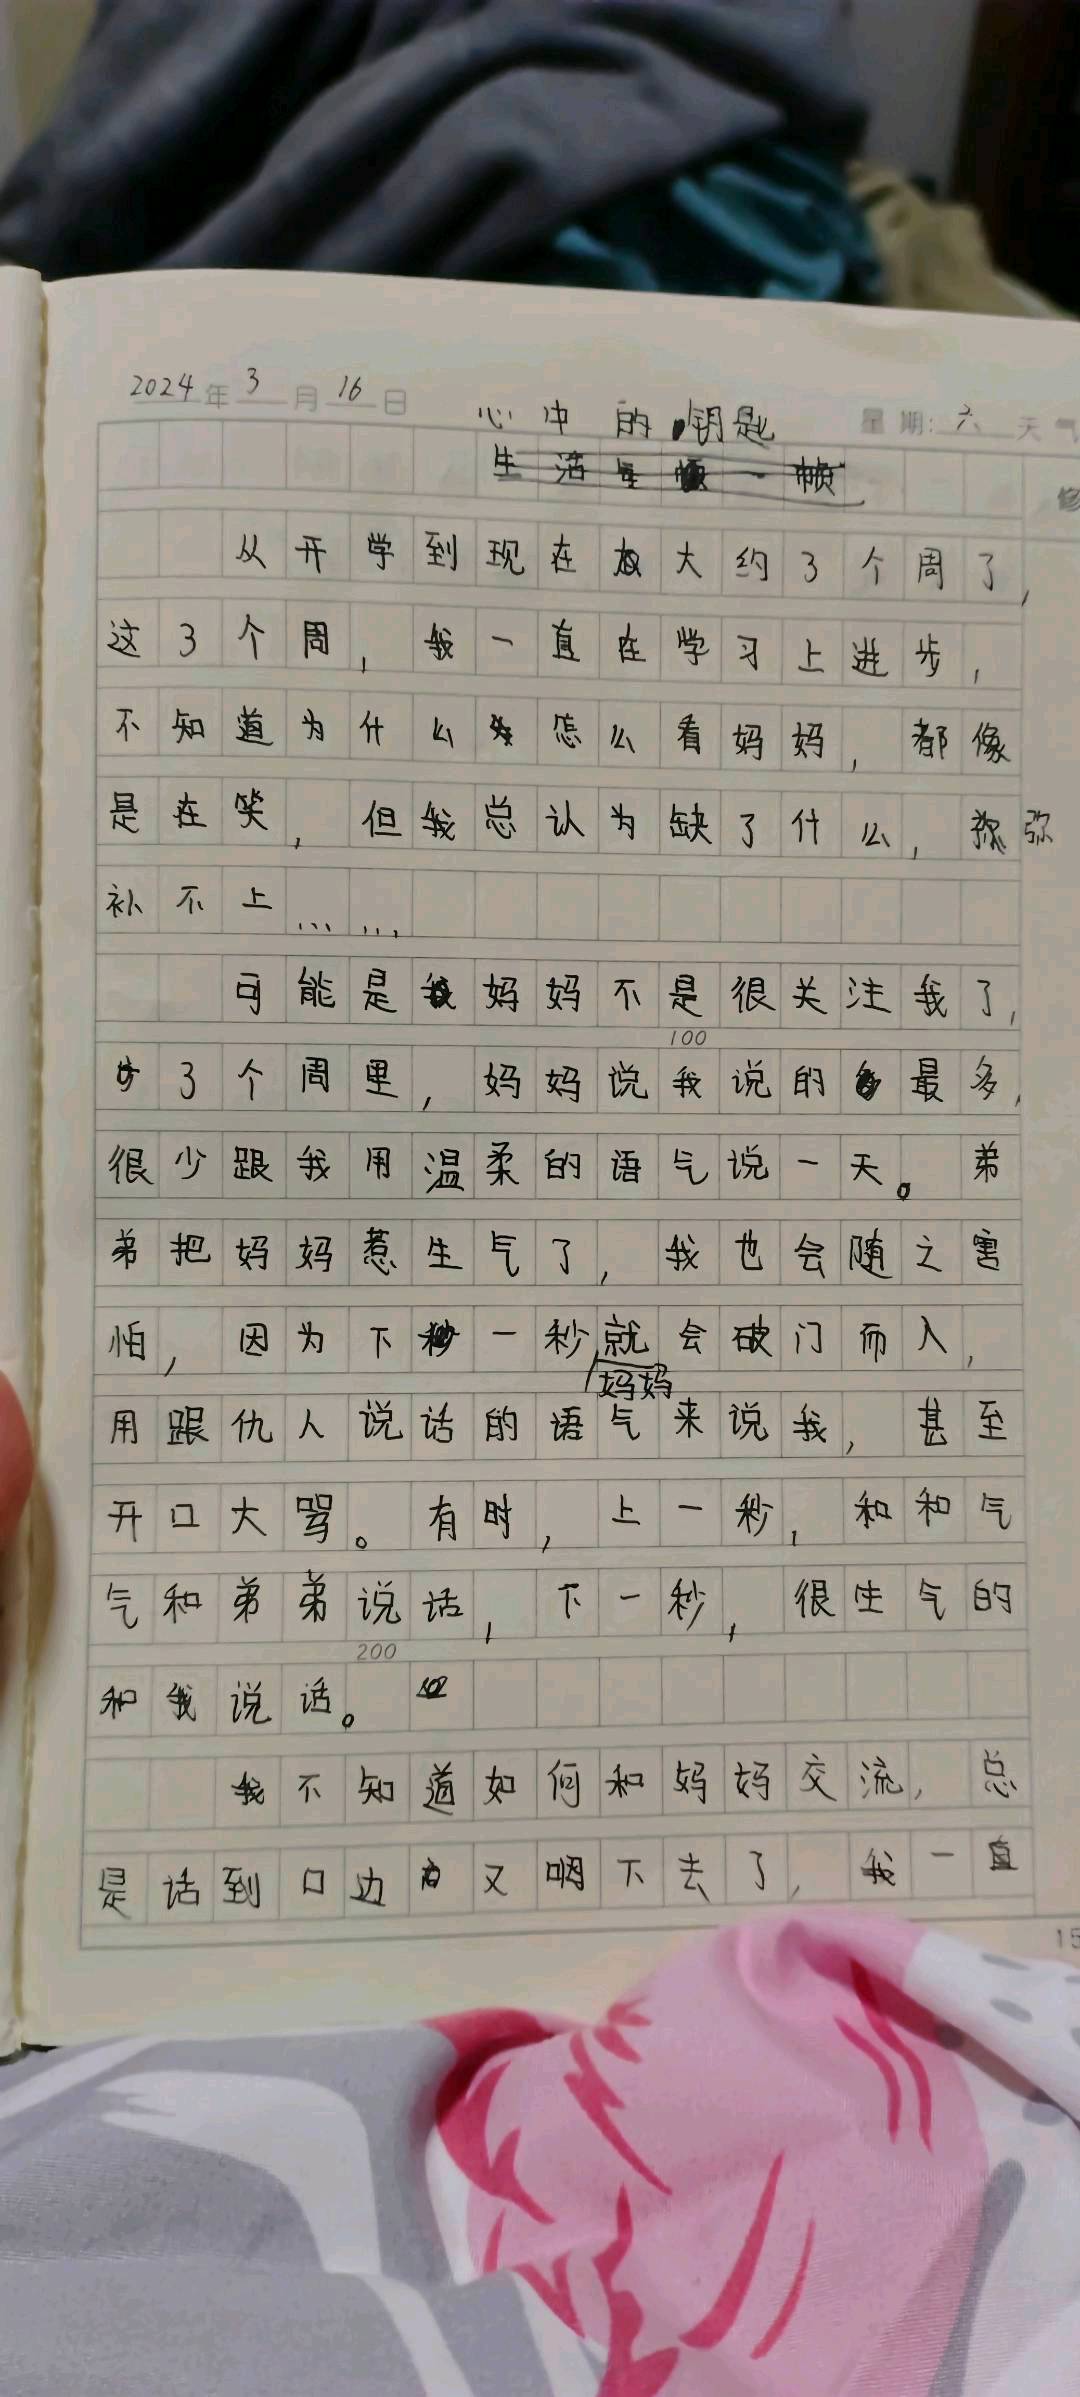 2024年3月16日 星期:六 天气
心中的钥匙
生活 一帧
修
从开学到现在大约3个周了,
这3个周,我一直在学习上进步,
不知道为什么怎么看妈妈,都像
是在笑,但我总认为缺了什么,弥
补不上……
可能是妈妈不是很关注我了,
100
3个周里,妈妈说我说的最多,
很少跟我用温柔的语气说一天。弟
弟把妈妈惹生气了,我也会随之害
怕,因为下一秒,妈妈就会破门而入,
用跟仇人说话的语气来说我,甚至
开口大骂。有时,上一秒,和和气
气和弟弟说话,下一秒,很生气的
200
和我说话。
我不知道如何和妈妈交流,总
是话到口边又咽下去了,我一直
15